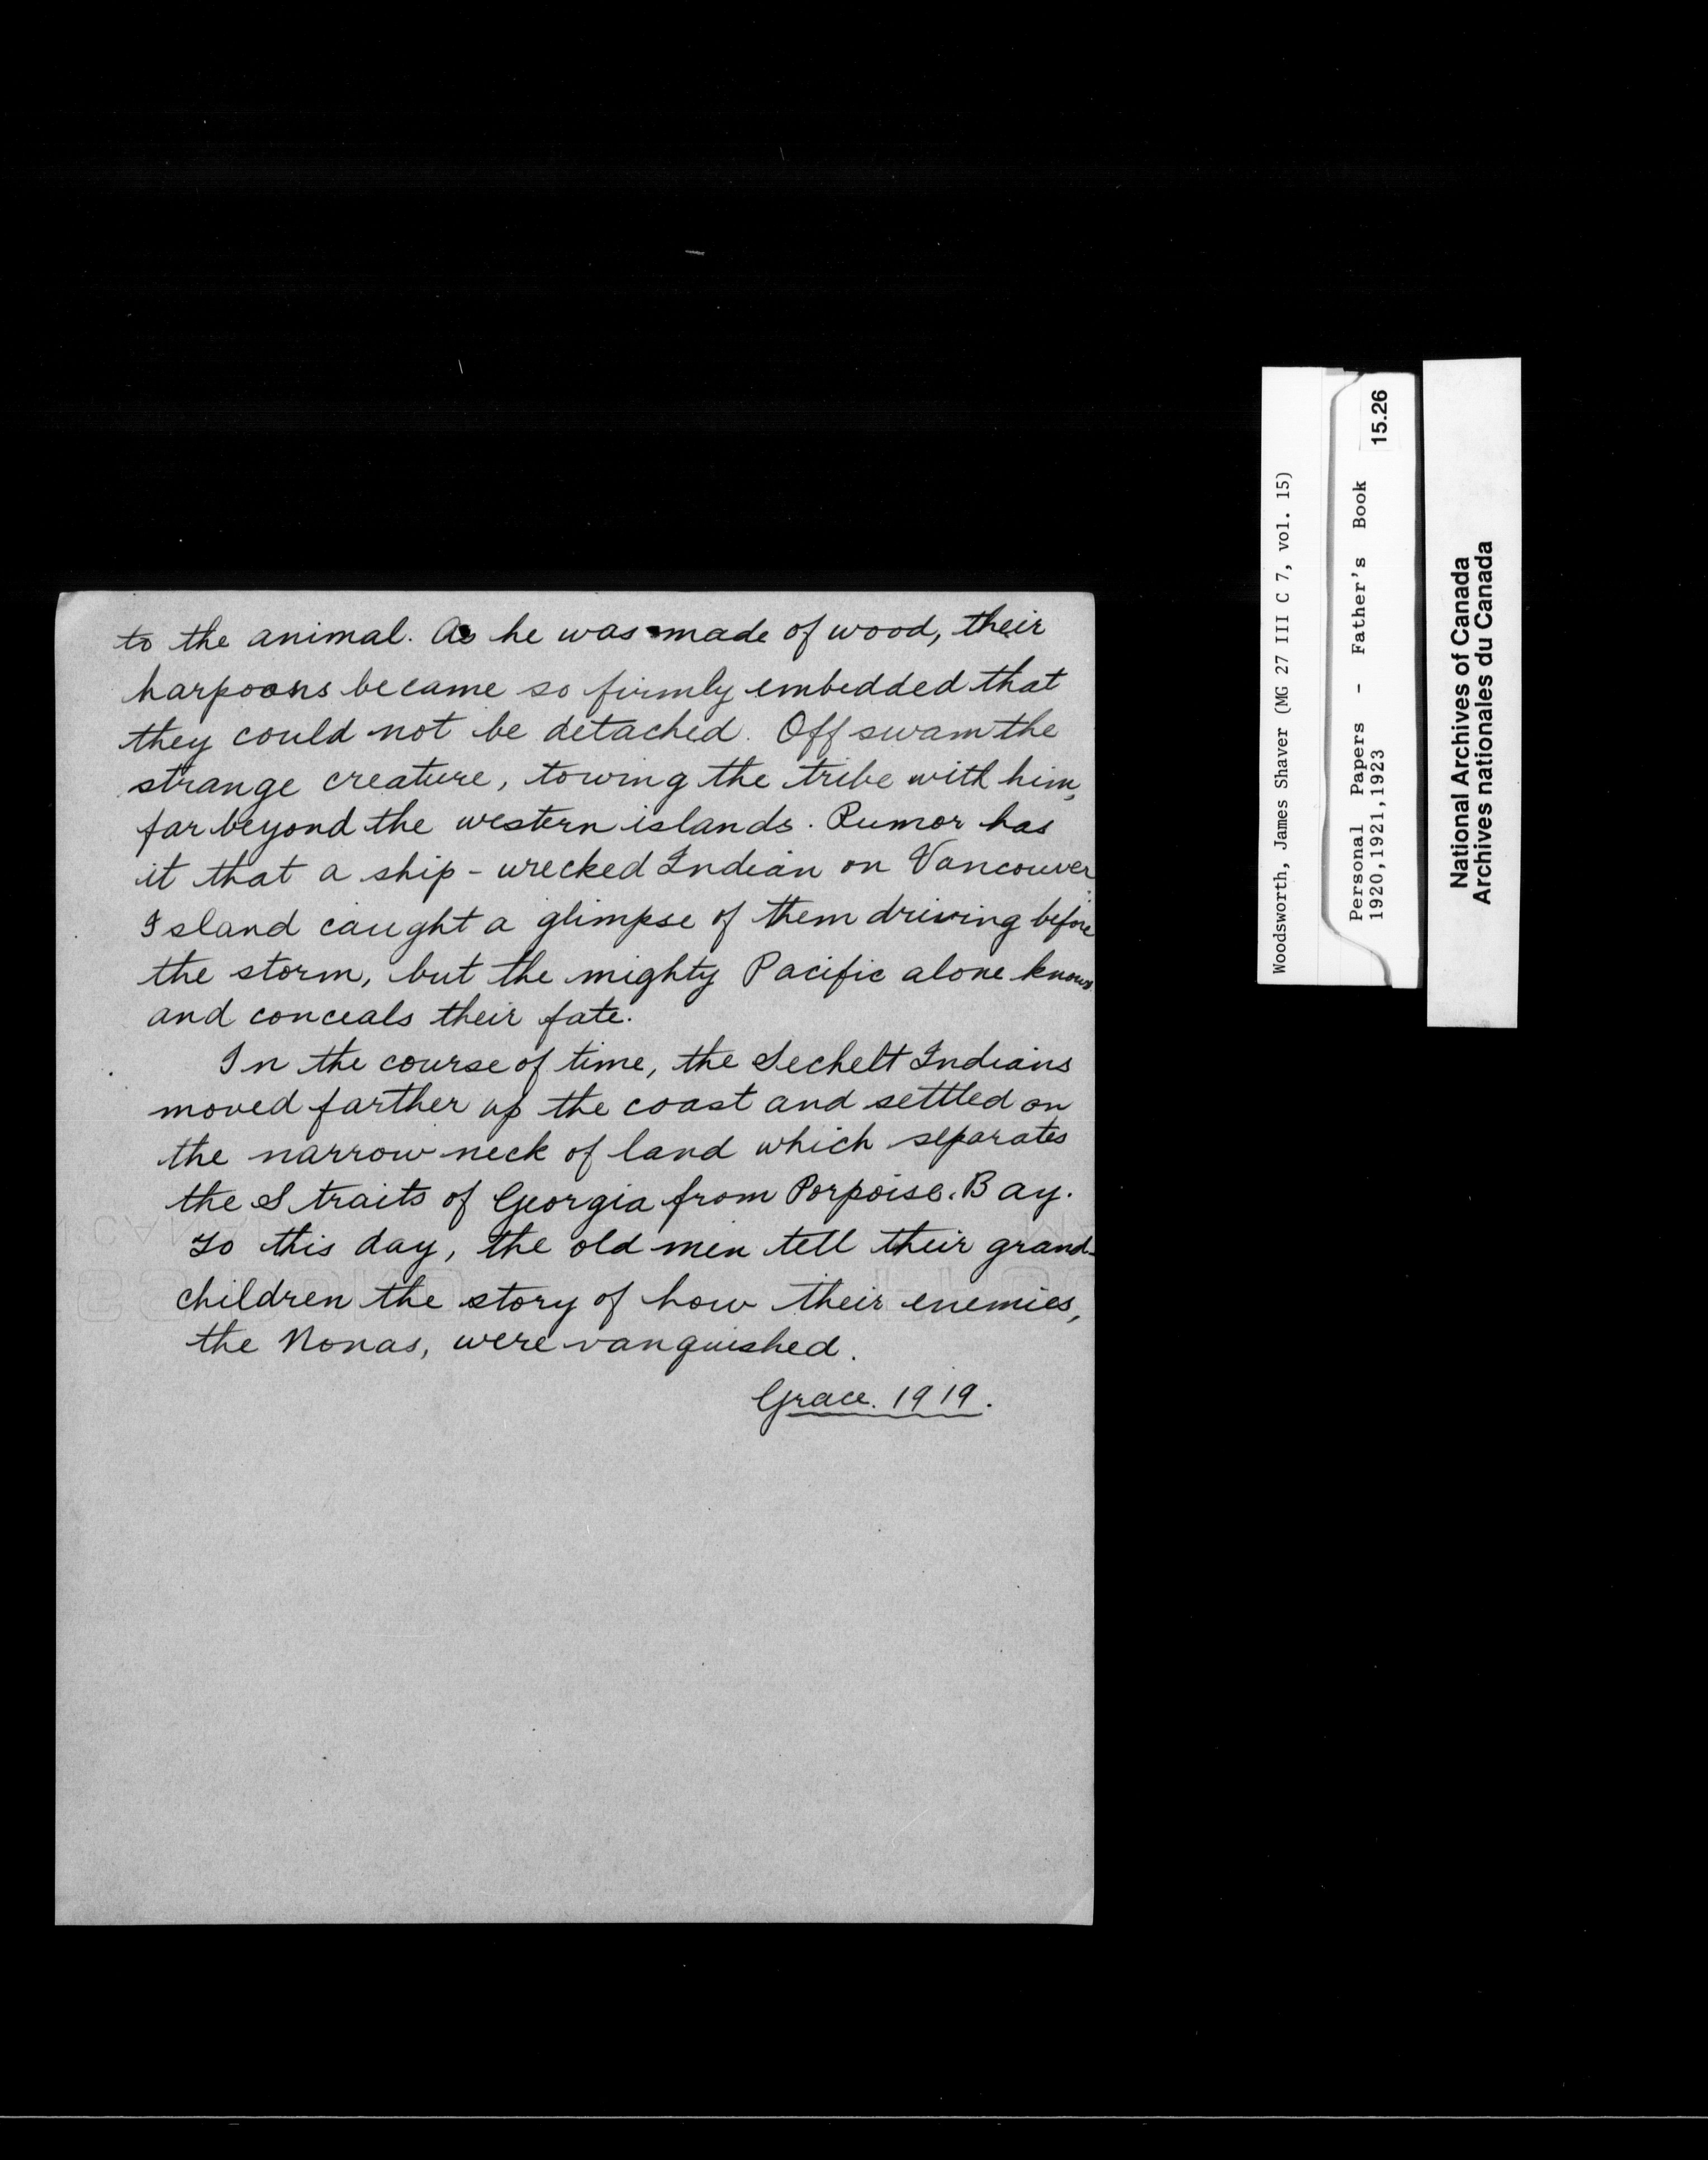 to the animal. As he was made of wood, their
harpoons became so firmly embedded that
they could not be detached. Off swam the
strange creature, towing the tribe with him,
far beyond the western islands. Rumor has
it that a ship-wrecked Indian on Vancouver
Island caught a glimpse of them driving before
the storm, but the mighty Pacific alone knows
and conceals their fate.
In the course of time, the Sechelt Indians
moved farther up the coast and settled on
the narrow neck of land which separates
the Straits of Georgia from Porpoise Bay.
To this day, the old men tell their grand-
children the story of how their enemies,
the Nonas, were vanquished.
Grace. 1919.
Woodsworth, James Shaver (MG 27 III C 7, vol. 15)
Personal Papers - Father's Book
1920,1921,1923
15.26
National Archives of Canada
Archives nationales du Canada